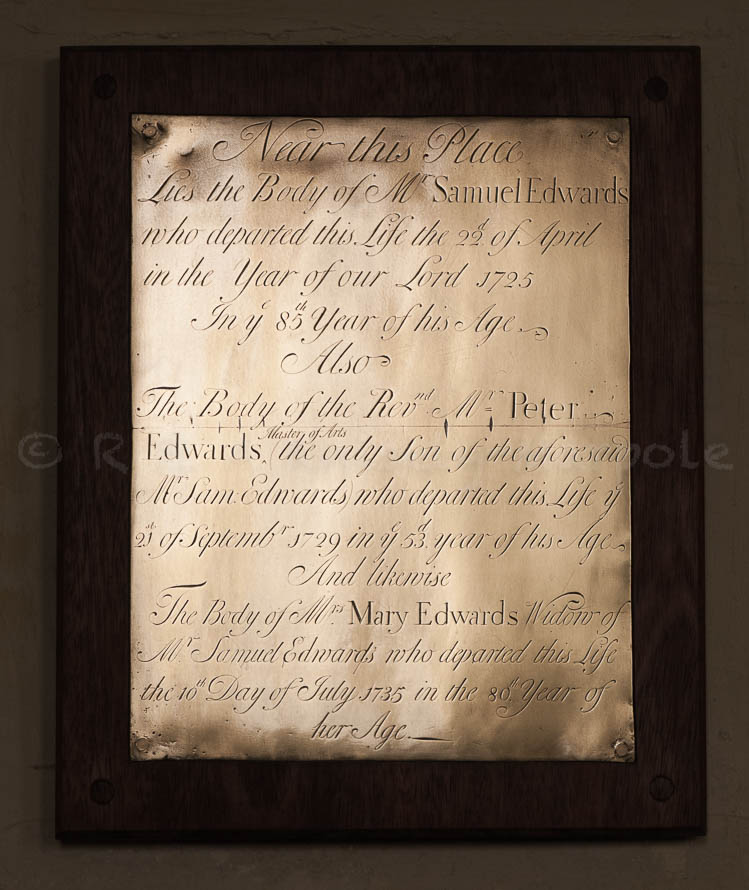 Near this Place
Lies the Body of Mr Samuel Edwards
who departed this Life the 22d of April
in the Year of our Lord 1725
In ye 85th Year of his Age
Also
The Body of the Revnd Mr Peter
Edwards, Master of Arts (the only Son of the aforesaid
Mr Sam: Edwards) who departed this Life ye
21st of Septembr 1729 in ye 53d year of his Age
And likewise
The Body of Mrs Mary Edwards Widow of
Mr Samuel Edwards who departed this Life
the 10th Day of July 1735 in the 89th Year of
her Age.